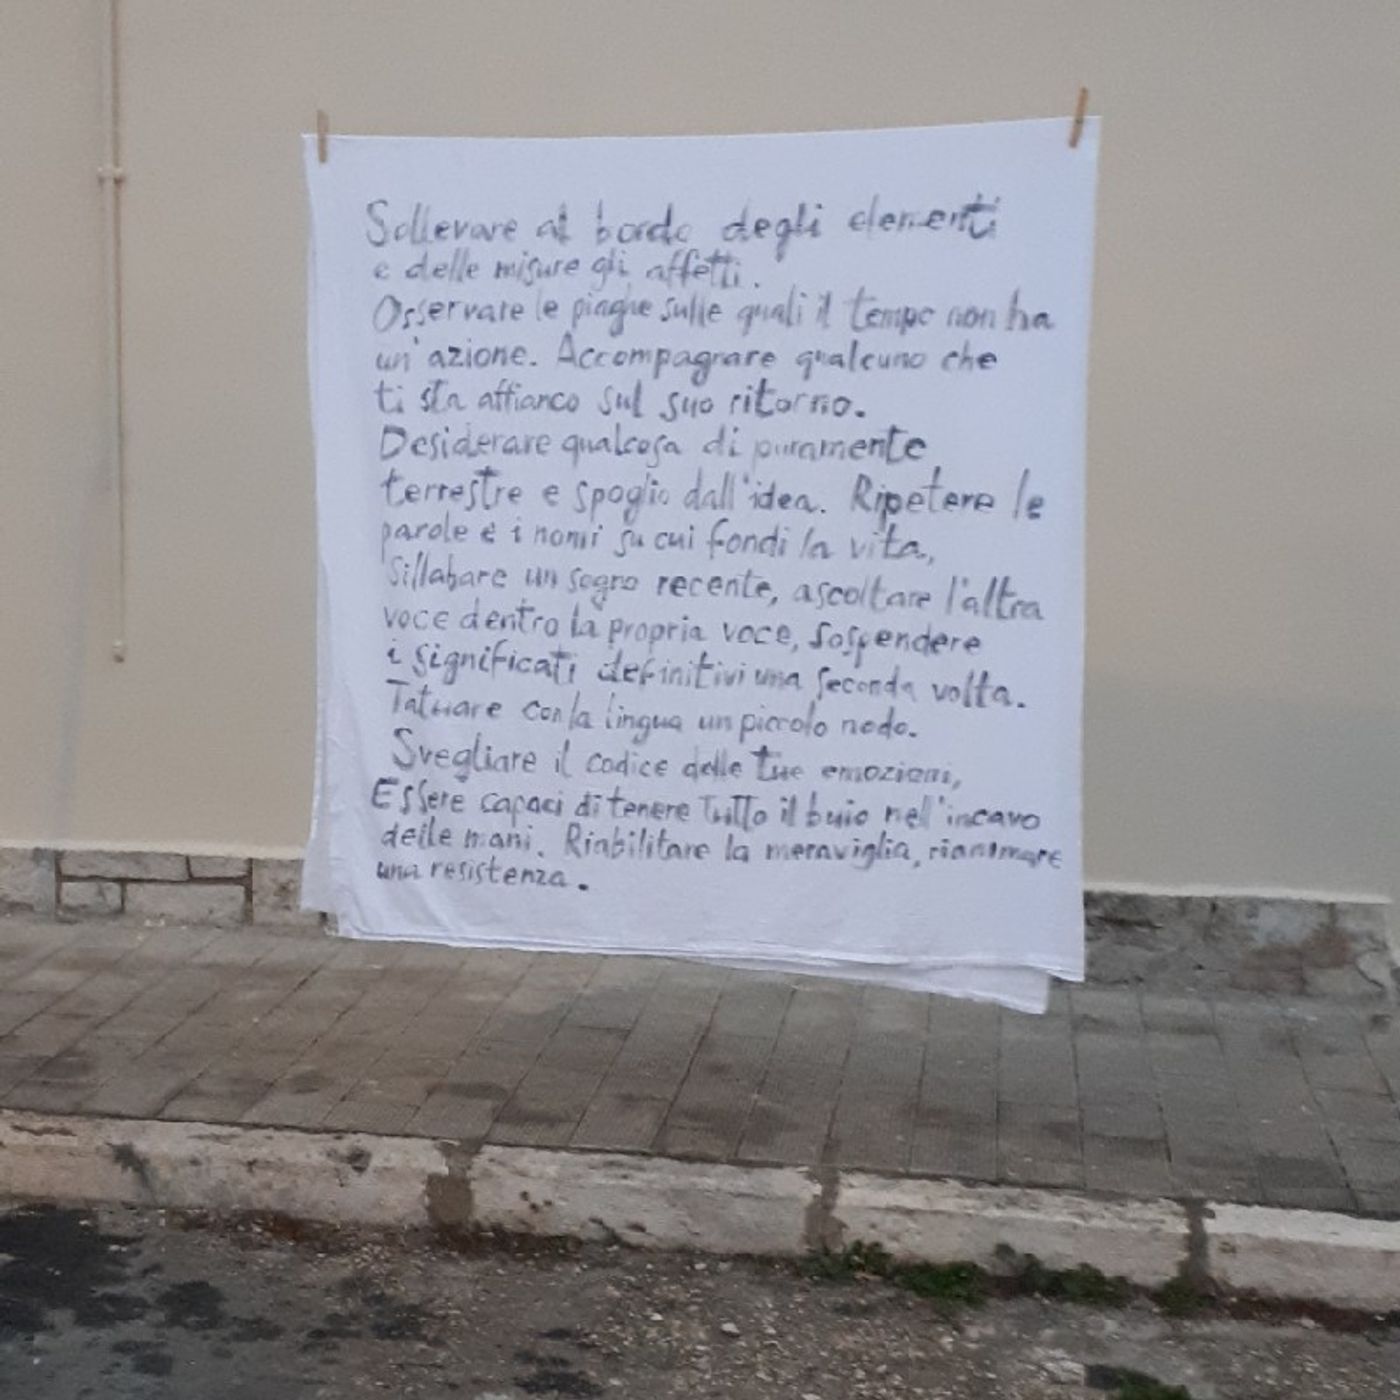 Sollevare al bordo degli elementi
e delle misure gli affetti.
Osservare le piaghe sulle quali il tempo non ha
un'azione. Accompagnare qualcuno che
ti sta affianco sul suo ritorno.
Desiderare qualcosa di puramente
terrestre e spoglio dall'idea. Ripetere le
parole e i nomi su cui fondi la vita,
Sillabare un sogno recente, ascoltare l'altra
voce dentro la propria voce, sospendere
i significati definitivi una seconda volta.
Tatuare con la lingua un piccolo nodo.
Svegliare il codice delle tue emozioni,
Essere capaci di tenere tutto il buio nell'incavo
delle mani. Riabilitare la meraviglia, rianimare
una resistenza.